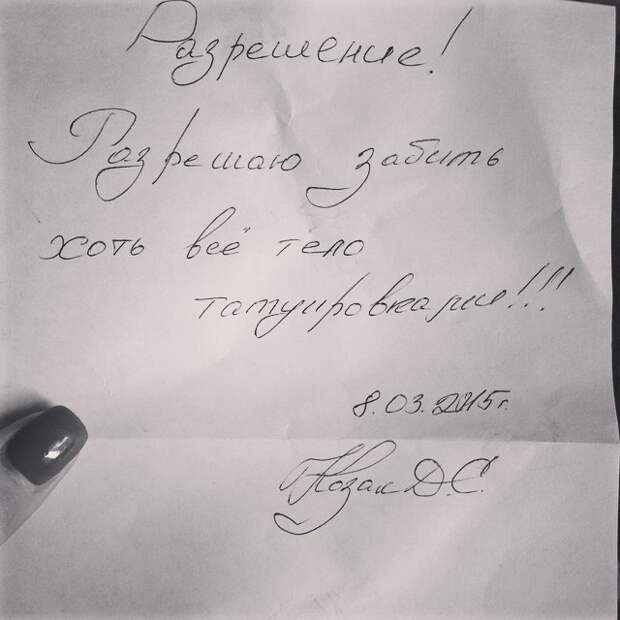 Разрешение!
Разрешаю забить
хоть всё тело
татуировками!!!
8.03.2015г.
Козак Д.С.